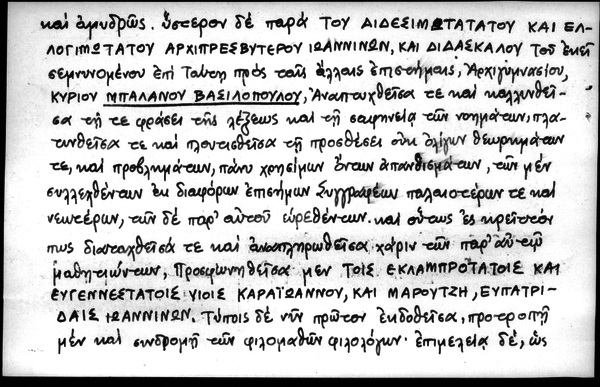 καὶ ἀμυδρῶς. ὕστερον δὲ παρὰ ΤΟΥ ΑΙΔΕΣΙΜΩΤΑΤΑΤΟΥ ΚΑΙ ΕΛ-
ΛΟΓΙΜΩΤΑΤΟΥ ΑΡΧΙΠΡΕΣΒΥΤΕΡΟΥ ΙΩΑΝΝΙΝΩΝ, ΚΑΙ ΔΙΔΑΣΚΑΛΟΥ τοῦ ἐκεῖ
σεμνυνομένου ἐπὶ ταύτῃ πρὸς ταῖς ἄλλαις ἐπιστήμαις, Ἀρχιγυμνασίου,
ΚΥΡΙΟΥ ΜΠΑΛΑΝΟΥ ΒΑΣΙΛΟΠΟΥΛΟΥ, Ἀναπτυχθεῖσα τε καὶ καλλυνθεῖ-
σα τῇ τε φράσει τῆς λέξεως καὶ τῇ σαφηνείᾳ τῶν νοημάτων, πλα-
τυνθεῖσα τε καὶ πλουτισθεῖσα τῇ προσθέσει οὐκ ὀλίγων θεωρημάτων
τε, καὶ προβλημάτων, πάνυ χρησίμων ὄντων ἀπανθισμάτων, τῶν μὲν
συλλεχθέντων ἐκ διαφόρων ἐπισήμων Συγγραφέων παλαιοτέρων τε καὶ
νεωτέρων, τῶν δὲ παρ' αὐτοῦ εὑρεθέντων. καὶ οὕτως ἐς κρεῖττόν
πως διαταχθεῖσά τε καὶ ἀναπληρωθεῖσα χάριν τῶν παρ' αὐτῷ
μαθητιώντων, Προσφωνηθεῖσα μὲν ΤΟΙΣ ΕΚΛΑΜΠΡΟΤΑΤΟΙΣ ΚΑΙ
ΕΥΓΕΝΝΕΣΤΑΤΟΙΣ ΥΙΟΙΣ ΚΑΡΑΪΩΑΝΝΟΥ, ΚΑΙ ΜΑΡΟΥΤΖΗ, ΕΥΠΑΤΡΙ-
ΔΑΙΣ ΙΩΑΝΝΙΝΩΝ. Τύποις δὲ νῦν πρῶτον ἐκδοθεῖσα, προτροπῇ
μὲν καὶ συνδρομῇ τῶν φιλομαθῶν φιλολόγων· ἐπιμελείᾳ δέ, ὡς